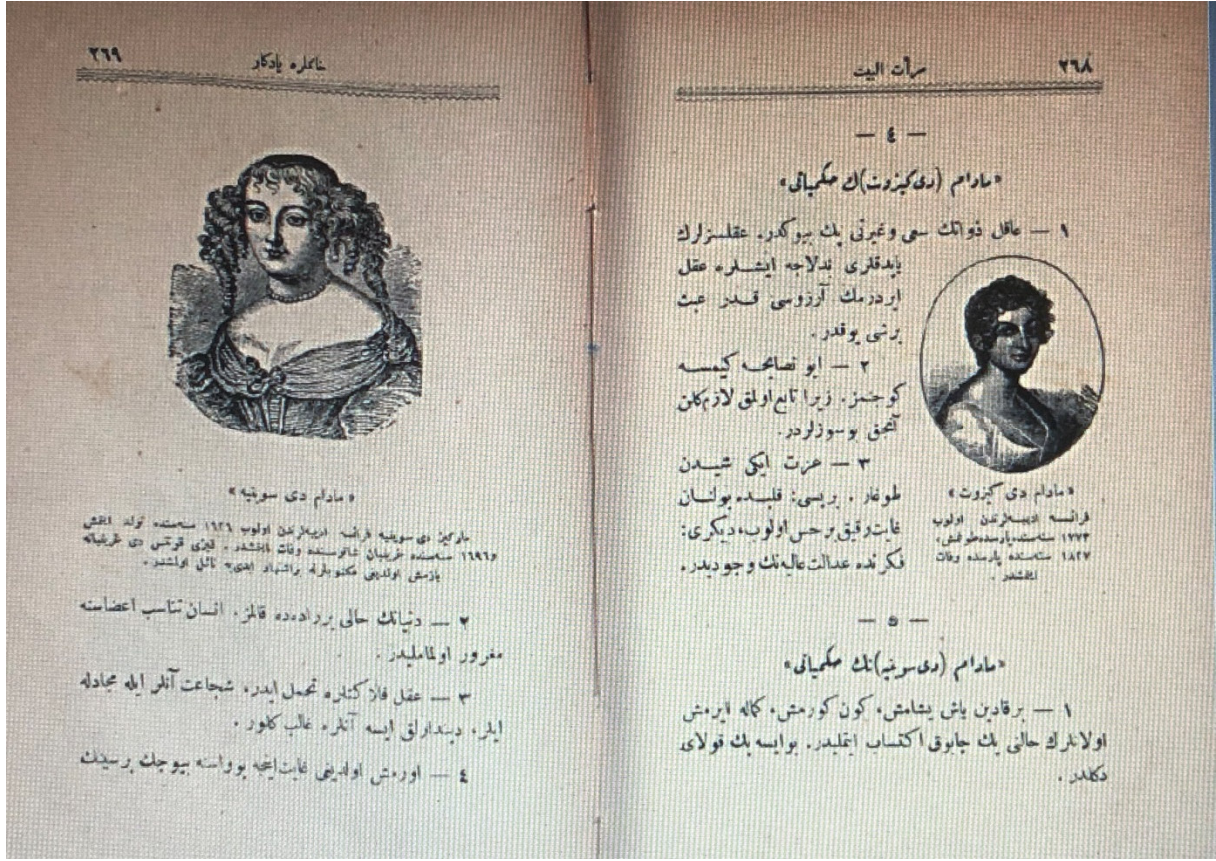 ٢٦٨
مرأت البيت
— ٤ —
«مادام (دی کیزوت)ك حکمیاتی»
١ — عاقل ذواتك سعی وغیرتی پك بیوکدر. عقلسزلرك
یاپدقلری بدلاجه ایشلره عقل
ایردرمك آرزوسی قدر عبث
برشی یوقدر.
٢ — ایو نصایحه کیمسه
کوجنمز. زیرا تابع اولمق لازمکلن
آنجق بو سوزلردر.
٣ — عزت ایکی شیدن
طوغار. بریسی: قلبده بولنان
غایت رقیق بر حس اولوب، دیکری:
فکرنده عدالت عالیه‌نك وجودیدر.
«مادام دی کیزوت»
فرانسه ادیبه‌لرندن اولوب
١٧٧٣ سنه‌سنده پارسده طوغمش،
١٨٢٧ سنه‌سنده پارسده وفات
ایتمشدر.
— ٥ —
«مادام (دی سوینیه)نك حکمیاتی»
١ — برقادین یاش یشامش، کون کورمش، کماله ایرمش
اولانلرك حالی پك چابوق اکتساب ایتملیدر. بوایسه پك قولای
دکلدر.
٢٦٩
خانملره یادکار
«مادام دی سوینیه»
مارکیز دی سوینیه فرانسه ادیبه‌لرندن اولوب ١٦٢٦ سنه‌سنده تولد ایتمش
و١٦٩٦ سنه‌سنده غرینیان شاتوسنده وفات ایتمشدر. قیزی قونتس دی غرینیانه
یازمش اولدیغی مکتوبلرله براشتهار ابدی‌یه نائل اولمشدر.
٢ — دنیانك حالی برراده‌ده قالمز. انسان تناسب اعضاسنه
مغرور اولماملیدر.
٣ — عقل فلاکتلره تحمل ایدر، شجاعت آنلر ایله مجادله
ایلر، دیندارلق ایسه آنلره غالب کلور.
٤ — اورمش اولدیغی غایت اینجه یوواسنه بیوجك برسینك